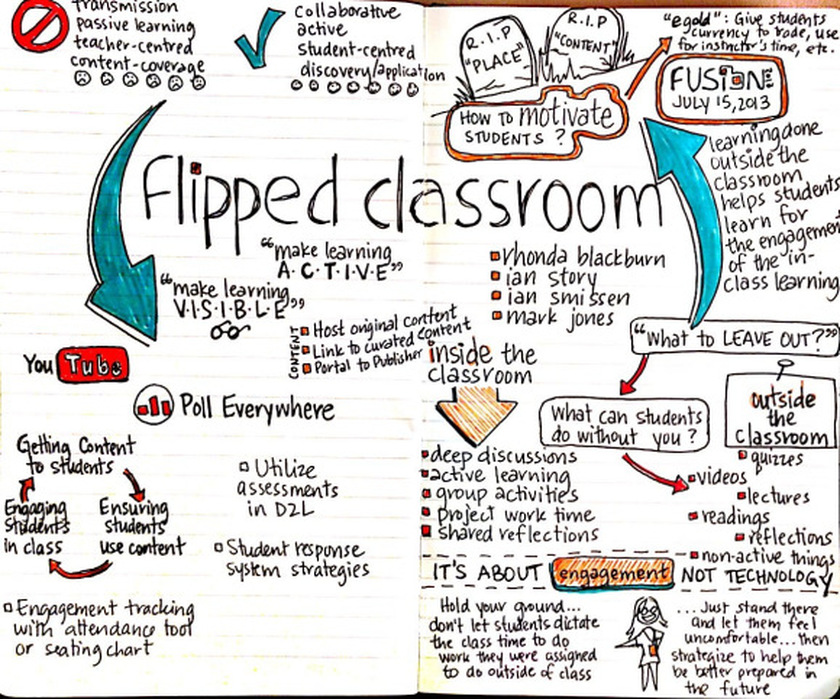 transmission
passive learning
teacher-centred
content-coverage
collaborative
active
student-centred
discovery/application
Flipped classroom
"make learning
A·C·T·I·V·E"
"make learning
V·I·S·I·B·L·E"
CONTENT
Host original content
Link to curated content
Portal to Publisher
You Tube
Poll Everywhere
Getting Content
to students
Ensuring
students
use content
Engaging
students
in class
Utilize
assessments
in D2L
Student response
system strategies
Engagement tracking
with attendance tool
or seating chart
R.I.P
"PLACE"
R.I.P
"CONTENT"
"egold": Give students
currency to trade, use
for instructor's time, etc.
HOW TO motivate
STUDENTS?
FUSION
JULY 15, 2013
learning done
outside the
classroom
helps students
learn for
the engagement
of the in-
class learning
rhonda blackburn
ian story
ian smissen
mark jones
"What to LEAVE OUT?"
What can students
do without you?
inside the
classroom
deep discussions
active learning
group activities
project work time
shared reflections
outside
the
classroom
quizzes
videos
lectures
readings
reflections
non-active things
IT'S ABOUT engagement NOT TECHNOLOGY
Hold your ground...
don't let students dictate
the class time to do
work they were assigned
to do outside of class
...Just stand there
and let them feel
uncomfortable...then
strategize to help them
be better prepared in
the future